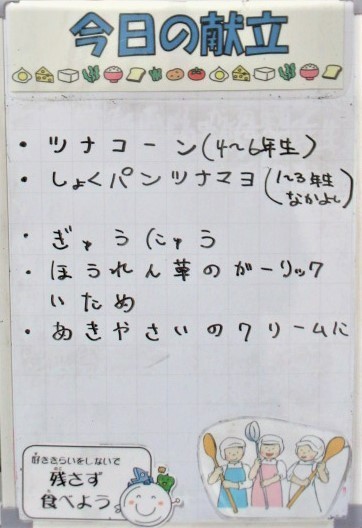 今日の献立
・ツナコーン(4〜6年生)
・しょくパンツナマヨ(1〜3年生
なかよし)
・ぎゅうにゅう
・ほうれん草のガーリック
いため
・あきやさいのクリームに
好ききらいをしないで
残さず
食べよう